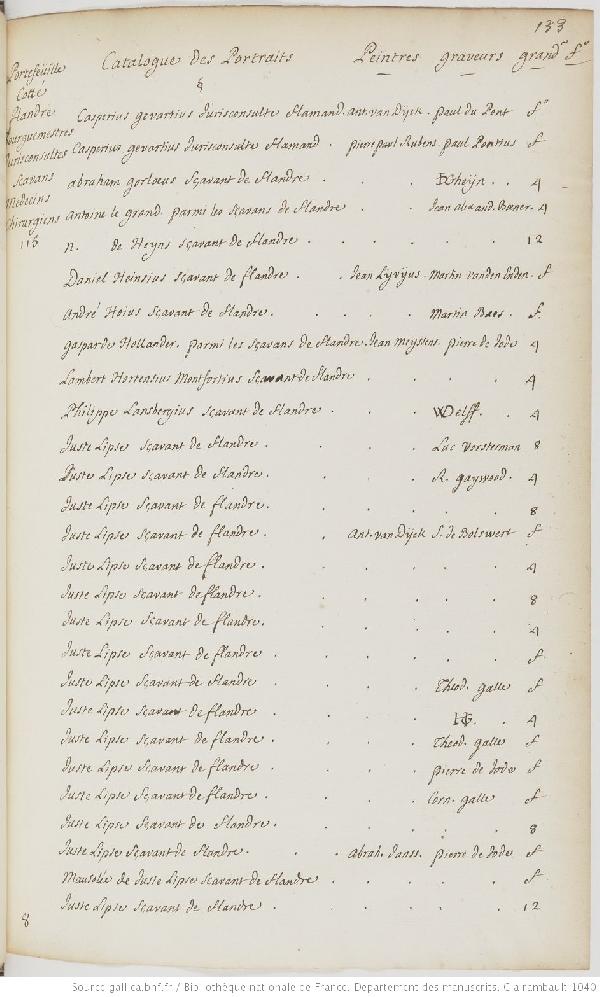 133
Portefeüille
Cotte
flandre
Bourguemestres
Jurisconsultes
Scavans
Medecins
Chirurgiens
113
Catalogue des Portraits Peintres graveurs grandr fo
§
Casperius gevartius Jurisconsulte flamand. ant. van Dÿck. paul du Pont fo
Casperius gevartius Jurisconsulte flamand. pierre paul Rubens. paul Pontius f
abraham gorlœus sçavant de flandre . . DGheÿn. . 4
antoine le grand. parmi les sçavans de flandre . . Jean alexand. Boener. 4
n. de Heyns sçavant de flandre . . . . . 12
Daniel Heinsius sçavant de flandre . . Jean Lyvÿus. Martin vanden Enden. f
andré Hoius sçavant de flandre. . . . Martin Baes. f.
gasparde Hollander. parmi les sçavans de flandre. Jean Meyssens. pierre de Jode 4
Lambert Hortensius Montfortius sçavant de flandre . . . . 4
Philippe Lansbergius sçavant de flandre . . . WDelff. . 4
Juste Lipse sçavant de flandre. . . . Luc Vorsterman 8
Juste Lipse sçavant de flandre. . . . R. gaywood. 4
Juste Lipse sçavant de flandre. . . . . . 8
Juste Lipse sçavant de flandre. . Ant. van Dÿck S. de Bolswert f
Juste Lipse sçavant de flandre. . . . . . 4
Juste Lipse sçavant de flandre. . . . . . 8
Juste Lipse sçavant de flandre. . . . . . 4
Juste Lipse sçavant de flandre . . . . . . f
Juste Lipse sçavant de flandre . . . . Theod. galle f
Juste Lipse sçavant de flandre . . . . HG. . 4
Juste Lipse sçavant de flandre . . . . Theod. galle f
Juste Lipse sçavant de flandre . . . . pierre de Jode f
Juste Lipse sçavant de flandre . . . . Corn. galle f
Juste Lipse sçavant de flandre. . . . . . 8
Juste Lipse sçavant de flandre. . . Abrah. Janss. pierre de Jode f
Mausolée de Juste Lipse sçavant de flandre . . . . . f
Juste Lipse sçavant de flandre . . . . . . 12
8
Source gallica.bnf.fr / Bibliothèque nationale de France. Département des manuscrits. Clairambault 1040